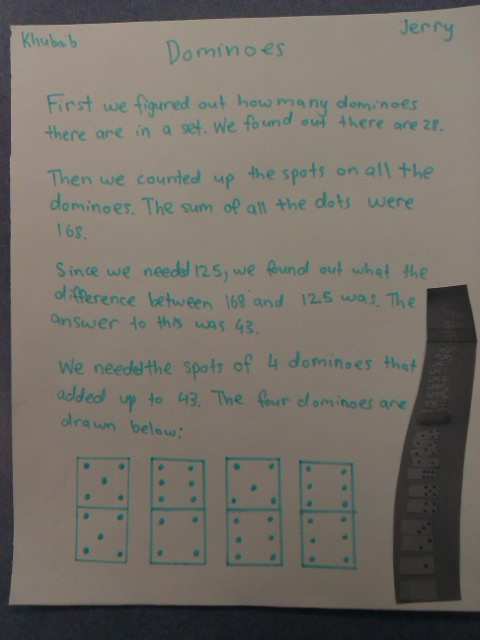 Khubaib
Jerry
Dominoes
First we figured out how many dominoes
there are in a set. We found out there are 28.
Then we counted up the spots on all the
dominoes. The sum of all the dots were
168.
Since we needed 125, we found out what the
difference between 168 and 125 was. The
answer to this was 43.
We needed the spots of 4 dominoes that
added up to 43. The four dominoes are
drawn below: